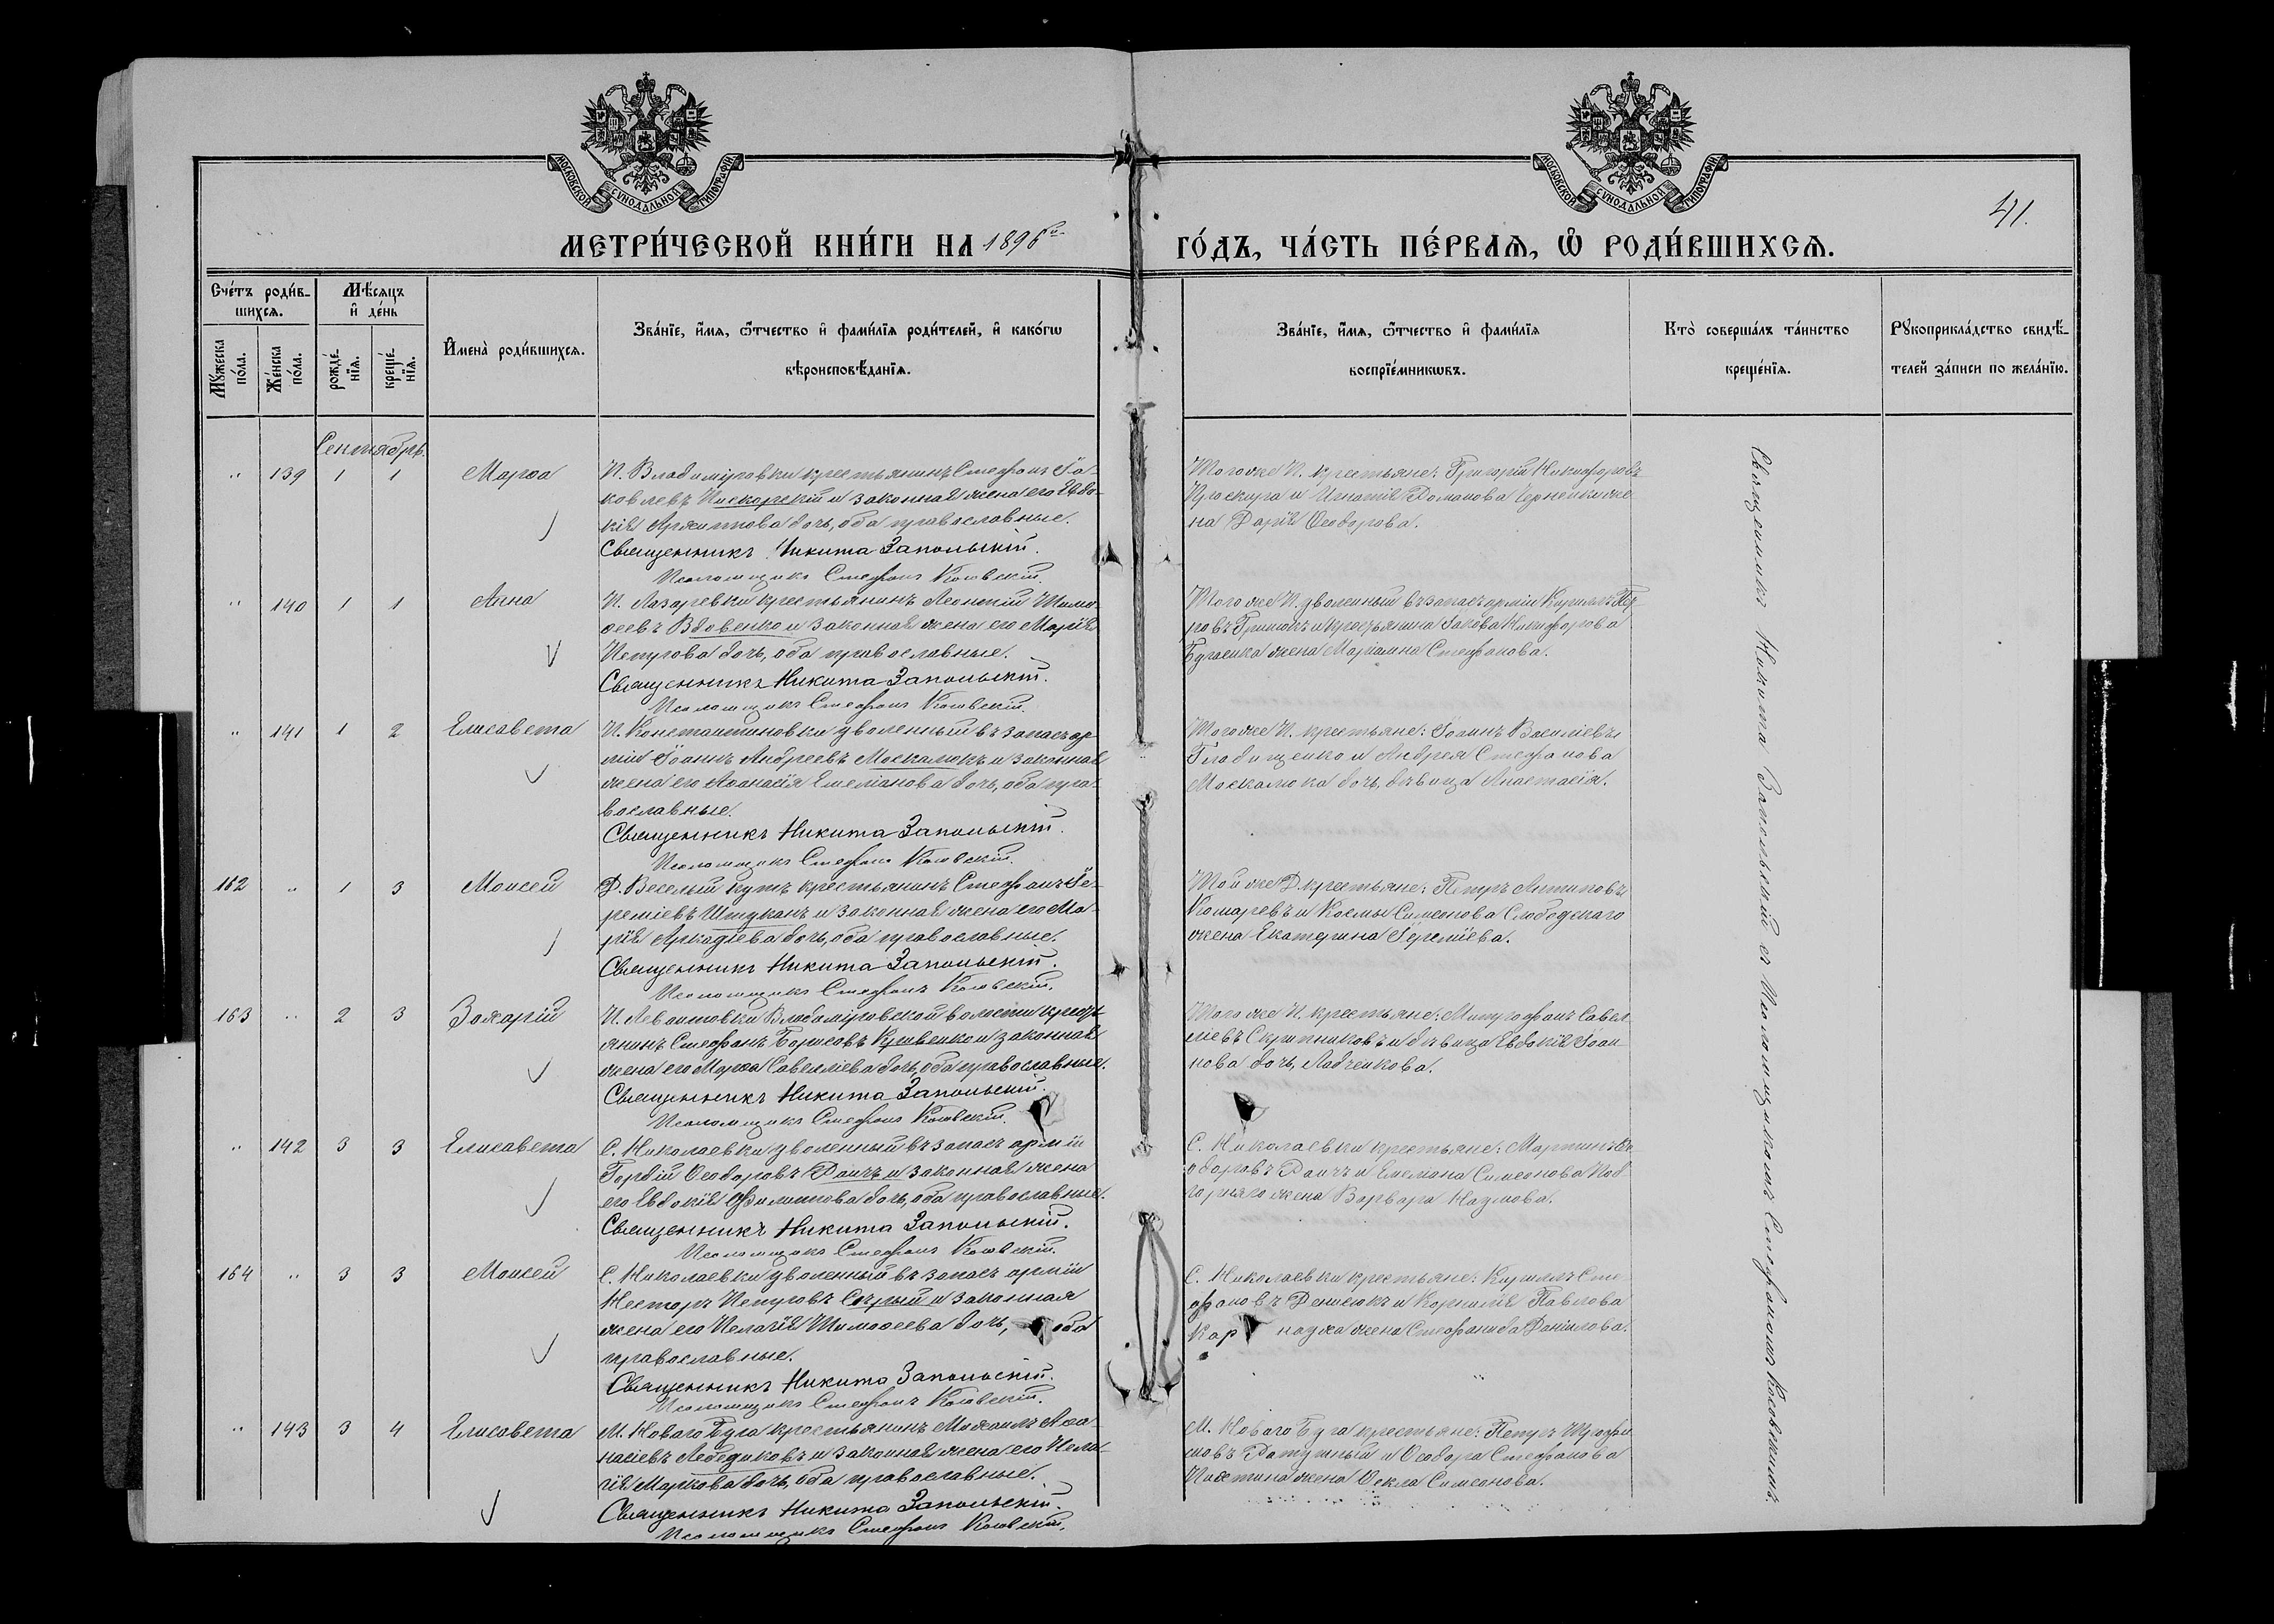 МОСКОВСКОЙ СУНОДАЛЬНОЙ ТИПОГРАФІИ
МОСКОВСКОЙ СУНОДАЛЬНОЙ ТИПОГРАФІИ
41.
МЕТРИ́ЧЕСКОЙ КНИ́ГИ НА 1896й
ГО́ДЪ, ЧА́СТЬ ПЕ́РВАѦ, Ѡ РОДИ́ВШИХСѦ.
Сче́тъ роди́в-
шихсѧ.
Му́жеска
по́ла.
Же́нска
по́ла.
Мѣ́сѧцъ
и҆ де́нь
рожде́-
нїѧ.
креще́-
нїѧ.
И҆мена̀ роди́вшихсѧ.
Зва́нїе, и҆́мѧ, ѻ҆́тчество и҆ фами́лїѧ роди́телей, и҆ како́гѡ
вѣроисповѣ́данїѧ.
Зва́нїе, и҆́мѧ, ѻ҆́тчество и҆ фами́лїѧ
воспрїе́мникѡвъ.
Кто̀ соверша́лъ та́инство
креще́нїѧ.
Рꙋкоприкла́дство свидѣ́-
телей за́писи по жела́нїю.
Сентябрь.
" 139 1 1 Марѳа
П. Владиміровки крестьянинъ Стефанъ Іа-
ковлевъ Пискорскій и законная жена его Евдо-
кія Архиппова дочь, оба православные.
Священникъ Никита Запольскій.
Псаломщикъ Стефанъ Косовскій.
Того же П. крестьяне: Григорій Никифоровъ
и Игнатія Романова жe-
на Дарія Ѳеодорова.
" 140 1 1 Анна
П. Лазаревки крестьянинъ Леонтій Тимо-
ѳеевъ Вдовенко и законная жена его Марія
Петрова дочь, оба православные.
Священникъ Никита Запольскій.
Псаломщикъ Стефанъ Косовскій.
Того же П. уволенный въ запасъ арміи Кириллъ Пе-
ровъ Гринюкъ и крестьянина Іакова Никифорова
жена Маріамна Стефанова.
" 141 1 2 Елисавета
П. Константиновки уволенный въ запасъ ар-
міи Іоаннъ Андреевъ Москалюкъ и законная
жена его Аѳанасія Емеліанова дочь, оба пра-
вославные.
Священникъ Никита Запольскій.
Псаломщикъ Стефанъ Косовскій.
Того же П. крестьяне: Іоаннъ Василіевъ
и Андрея Стефанова
Москалюка дочь, дѣвица Анастасія.
162 " 1 3 Моисей
Д. Веселый кутъ крестьянинъ Стефанъ Іе-
реміевъ Штуканъ и законная жена его Ма-
рія Аркадіева дочь, оба православные.
Священникъ Никита Запольскій.
Псаломщикъ Стефанъ Косовскій.
Той же Д. крестьяне: Петръ Антиповъ
Комаревъ и Космы Симеонова Слободскаго
жена Екатерина Іереміева.
163 " 2 3 Захарій
П. Левантовки Владиміровской волости кресть-
янинъ Стефанъ Борисовъ Кривенко и законная
жена его Марѳа Савелліева дочь, оба православные.
Священникъ Никита Запольскій.
Псаломщикъ Стефанъ Косовскій.
Того же П. крестьяне: Митрофанъ Савел-
ліевъ Скрипниковъ и дѣвица Евдокія Іоан-
нова дочь, Ладченкова.
" 142 3 3 Елисавета
С. Николаевки уволенный въ запасъ арміи
Гордій Ѳеодоровъ Раичъ и законная жена
его Евдокія Филиппова дочь, оба православные.
Священникъ Никита Запольскій.
Псаломщикъ Стефанъ Косовскій.
С. Николаевки крестьяне: Мартинъ Ѳе-
одоровъ Раичъ и Емеліана Симеонова Под-
горняго жена Варвара Наумова.
164 " 3 3 Моисей
С. Николаевки уволенный въ запасъ арміи
Несторъ Петровъ Сѣрый и законная
жена его Пелагія Тимоѳеева дочь, оба
православные.
Священникъ Никита Запольскій.
Псаломщикъ Стефанъ Косовскій.
С. Николаевки крестьяне: Кириллъ Сте-
фановъ Денисюкъ и Корнилія Павлова
Кар науха жена Стефанида Даніилова.
" 143 3 4 Елисавета
М. Новаго Буга крестьянинъ Михаилъ Аѳа-
насіевъ Лебедиковъ и законная жена его Пела-
гія Маркова дочь, оба православные.
Священникъ Никита Запольскій.
Псаломщикъ Стефанъ Косовскій.
М. Новаго Буга крестьяне: Петръ Трофи-
мовъ Ратушный и Ѳеодора Стефанова
жена Ѳекла Симеонова.
Священникъ Никита Запольскій съ Псаломщикомъ Стефаномъ Косовскимъ.